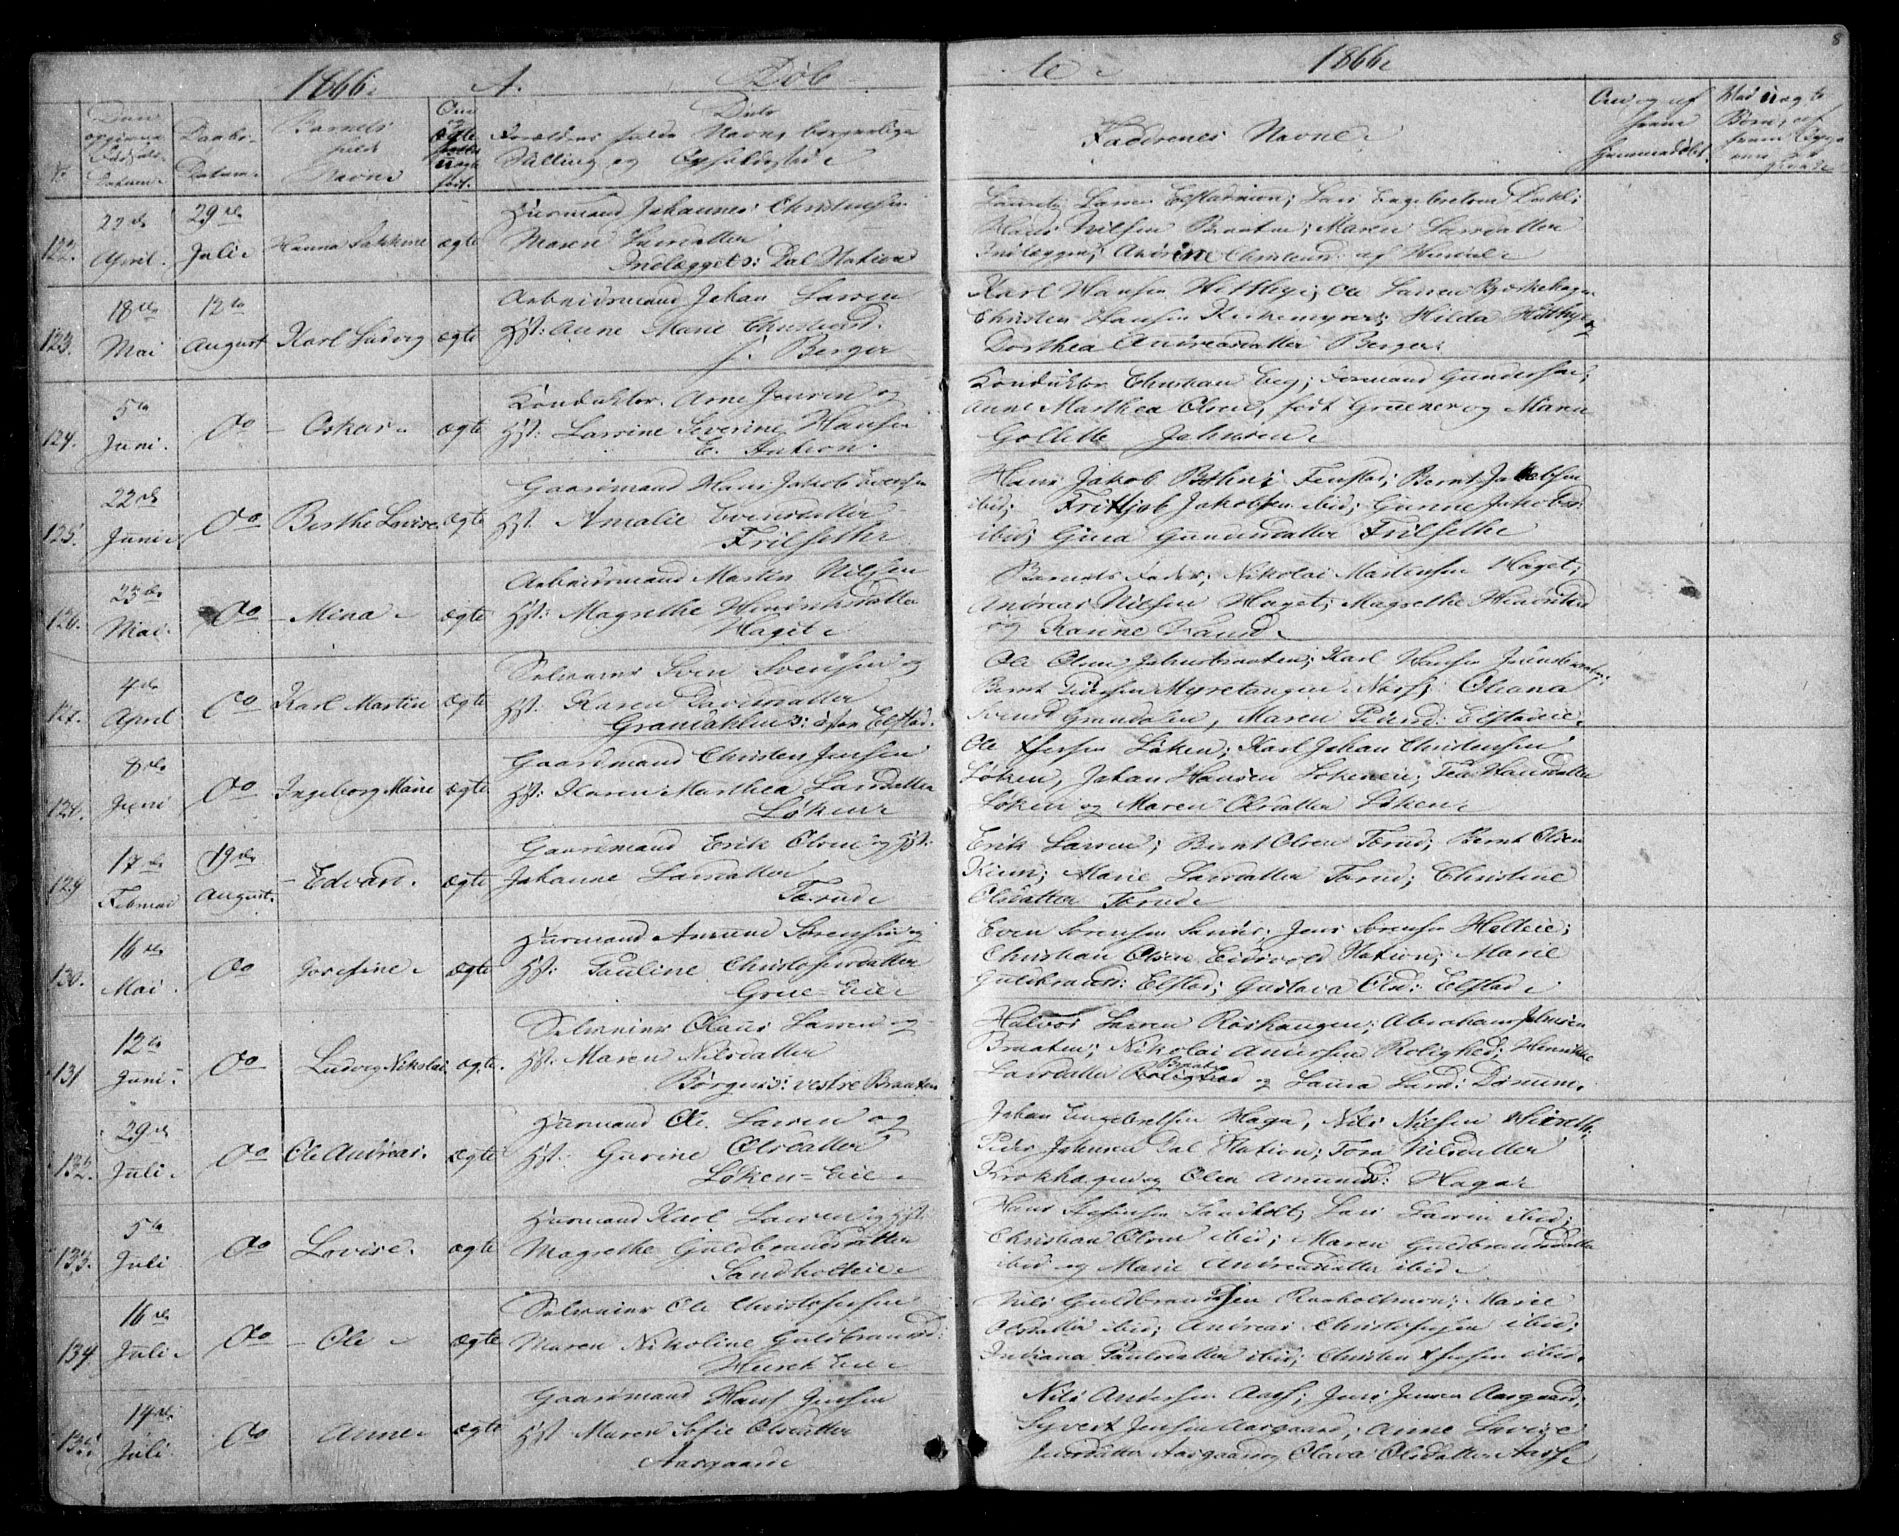 1866. A. Døb
te. 1866.
8
No
Den
Fødsels-
Datum.
Daabs-
Datum.
Barnets
fulde
Navn.
Om
ægte
eller
uægte
født.
Dets
Forældres fulde Navne borgerlige
Stilling og Opholdssted.
Faddrenes Navne.
Om og af
hvem
hjemmedøbt.
Ved uægte
Børn, af
hvem
122. 22de April. 29de Juli. Hanna Jakkine ægte
Huusmand Johannes Christensen
Maren Larsdatter
Indlægget s: Dal Station
Lauritz Larsen Elstadmoen; Lars Engebretsen Dahl;
Hans Nilsen Braaten; Maren Larsdatter
Indlægget; Andrine Christensd: af Hurdal.
123. 18de Mai 12te August Karl Ludvig ægte
Arbeidsmand Johan Larsen
Hst: Anne Marie Christiansd:
f. Berger
Karl Hansen Hithbye; Ole Larsen Bjørkehagen
Christen Hansen Kirkemyren; Hilda Hithbye og
Dorthea Andreasdatter Berger.
124. 5te Juni. Do - Oskar. ægte
Konduktør. Arne Jensen og
Hst: Lavrine Severine Hansen
E. Station.
Konduktør Christian Eeg; Formand Gundersen;
Anne Marthea Olsen, født Gruener og Maren
Gollette Johnsen.
125. 22de Juni. Do Berthe Lovise. ægte
Gaardmand Hans Jakob Evensen
Hst. Amalie Evensdatter
Frilsethe
Hans Jakob Bothn; Finstad; Bernt Jakobsen
ibid; Fritjob Jakobsen ibid; Gunne Jakobsd:
ibid; Gina Gunnersdatter Frilsethe
126. 23de Mai. Do - Mina. ægte
Arbeidsmand Martin Nilsen
Hst: Magrethe Henriksdatter
Haget.
Barnets Fader; Nikolai Martinsen Haget;
Andreas Nilsen Haget; Magrethe Henriksd:
og Karine
127. 4de April Do Karl Martin ægte
Selveier Sven Svensen og
Hst. Karen Davidsdatter
Grandalen s: Elstad.
Ole Olsen Johnsbraaten; Karl Hansen Johnsbraaten;
Bernt Pedersen Myretangen Næs; Oleana
Svensd Grandalen, Maren Pedersd: Elstadeie.
128. 8de Juni Do Ingeborg Marie ægte
Gaardmand Christen Jensen
Hst: Karen Marthea Larsdatter
Løken.
Ole Iversen Løken; Karl Johan Christensen
Løken, Johan Hansen Løkeneie; Tea Hansdatter
Løken og Maren Olsdatter Løken.
129 17de Februar 19de August. - Edvart. ægte
Gaardmand Erik Olsen og Hst:
Johanne Larsdatter
Tærud.
Erik Larsen; Bernt Olsen Tærud; Bernt Olsen
Kinn; Marie Larsdatter Tærud; Christine
Olsdatter Tærud.
130. 16de Mai. Do Josefine. ægte
Huusmand Amund Sørensen og
Hst: Pauline Christofersdatter
Grue-Eie.
Even Sørensen Sanner; Jens Sørensen Holteie;
Christian Olsen Eidsvold Station; Marie
Guldbrandsd: Elstad; Gustava Olsd: Elstad.
131 12te Juni. Do Ludvig Nikolai ægte.
Selveier Olaus Larsen og
Hst: Maren Nilsdatter
Børgens: vestre Braaten
Halvor Larsen Røshaugen; Abraham Johnsen
Braaten; Nikolai Andersen Rolighed; Henrikke
Larsdatter Rolighed Braaten og Laura Larsd: Dønnum.
132. 29de Juli. Do Ole Andreas. ægte
Huusmand Ole. Larsen og
Hst: Gurine Olsdatter
Løken-Eie.
Johan Engebretsen Haga, Nils Nilsen
Peder Johnsen Dal Station; Tora Nilsdatter
Krokhagen og Olea Amundsd: Haga.
133. 5te Juli Do Lovise. ægte
Huusmand Karl Larsen og Hst:
Magrethe Guldbrandsdatter
Sandholteie.
Hans Sandholt; Lars Larsen ibid;
Christian Olsen ibid; Maren Guldbrandsdatter
ibid og Marie Andreasdatter ibid.
134 16de Juli. Do - Ole. ægte
Selveier Ole Christofersen
Maren Nikoline Guldbrandsd:
Eie.
Nils Guldbrandsen Raaholtmoen; Marie
Olsdatter ibid; Andreas Christofersen ibid;
Indiana Paulsdatter ibid; Christen Iversen ibid.
135. 14de Juli. Do Anne. ægte
Gaardmand Hans Jensen
Hst Maren Sofie Olsdatter
Aasgaard.
Nils Andersen Aas; Jens Jensen Aasgaard,
Syvert Jensen Aasgaard; Anne Lovise
Jensdatter Aasgaard og Olava Olsdatter Aas.